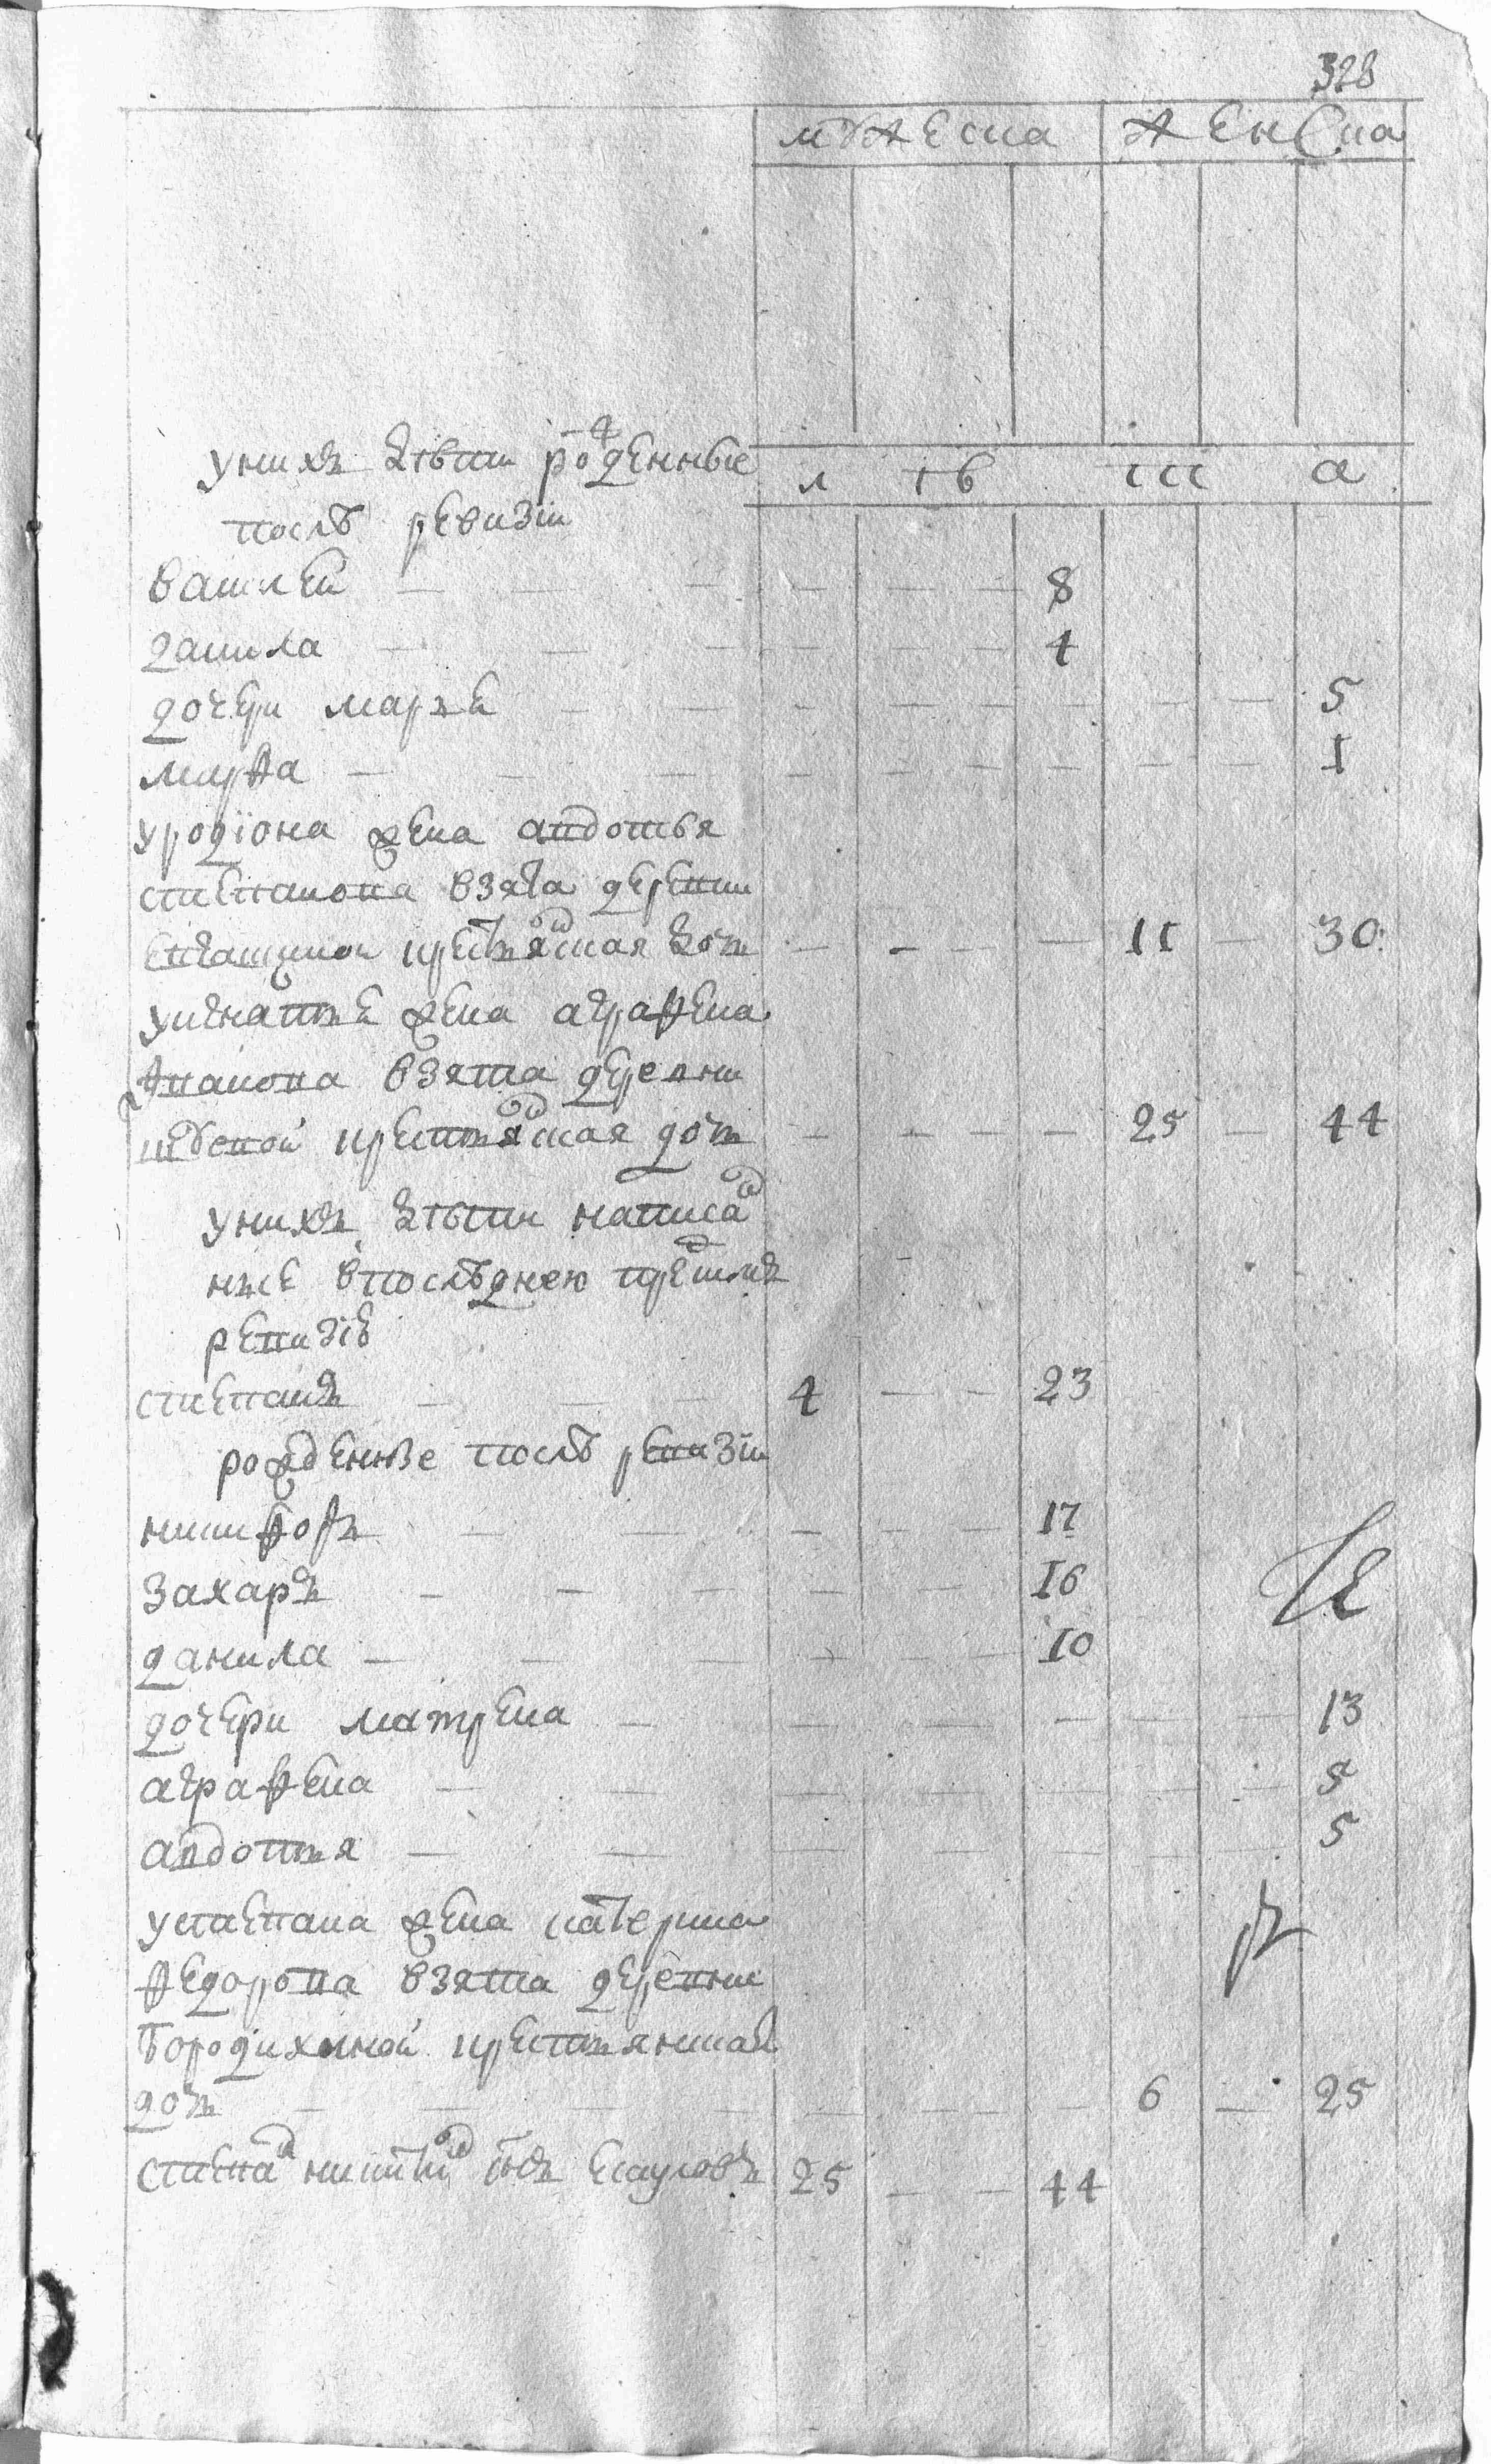 328
мужеска женска
унихъ дѣти рожденные лѣ та
послѣ ревизіи
василей — 8
данила — 4
дочери марья — 5
марфа — 1
уродіона жена авдотья
степанова взята деревни
крестьянская доч — 11 — 30
уигнатья жена аграфена
иванова взята деревни
крестьянская доч — 25 — 44
унихъ дѣти написа
ные впоследнею пред
ревизіе
степанъ 4 — 23
рожденные послѣ ревизіи
никифоръ — 17
захаръ — 16
данила — 10
дочери матрена — 13
аграфена — 5
авдотья — 5
устепана жена катерина
федорова взята деревни
бородихиной крестьянская
доч — 6 — 25
степан никитин сынъ есауловъ 25 — 44